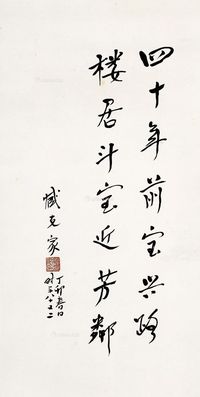 四十年前宝兴路
楼居斗室近芳邻
臧克家
丁卯春日
时年八十二